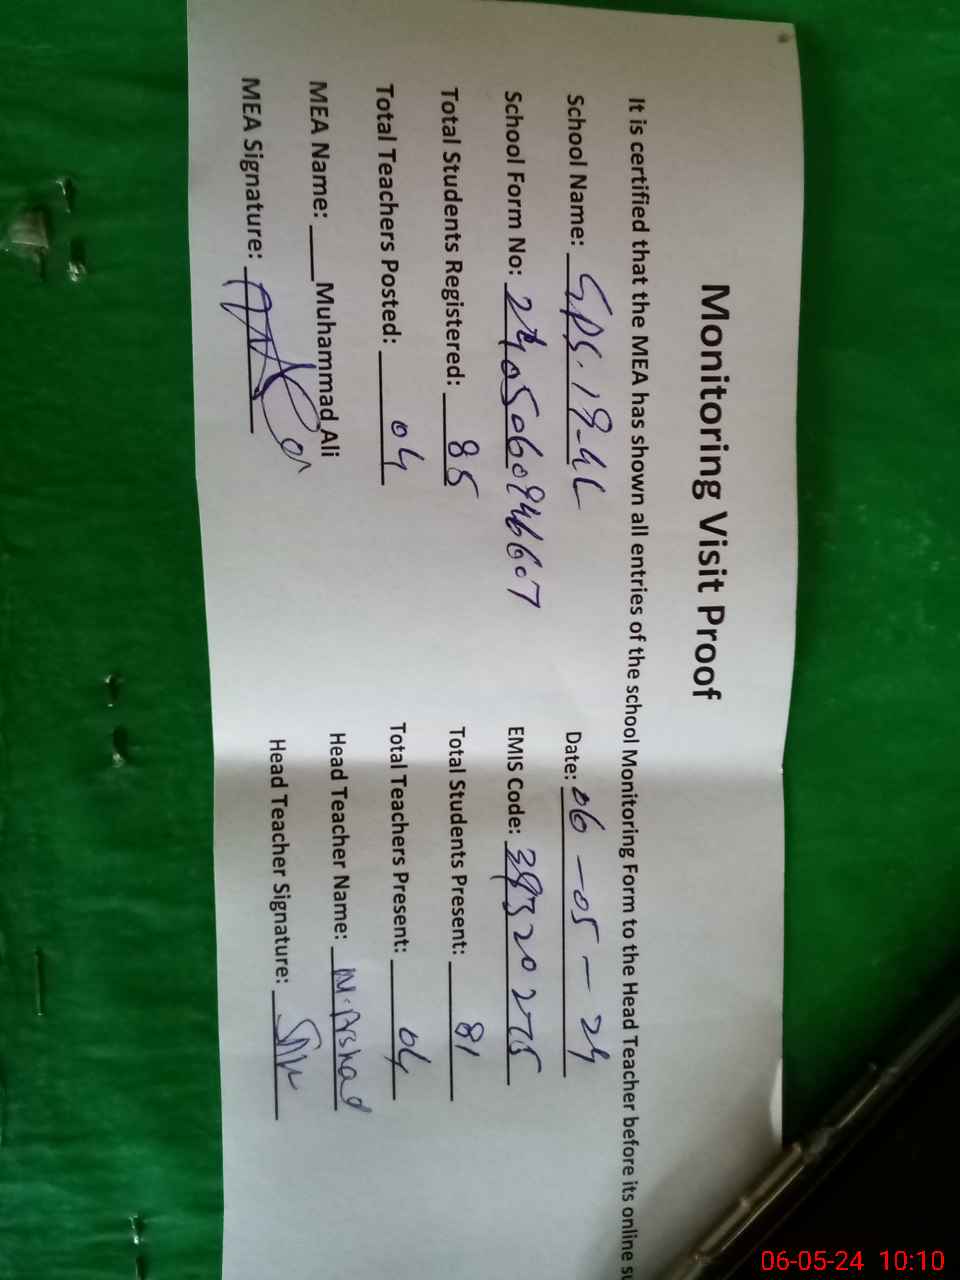 Monitoring Visit Proof
It is certified that the MEA has shown all entries of the school Monitoring Form to the Head Teacher before its online su
School Name: GPS. 19-4L Date: 06-05-24
School Form No: EMIS Code: 39320275
Total Students Registered: 85 Total Students Present: 81
Total Teachers Posted: 04 Total Teachers Present: 04
MEA Name: Muhammad Ali Head Teacher Name: M. Arshad
MEA Signature: Head Teacher Signature:
06-05-24 10:10